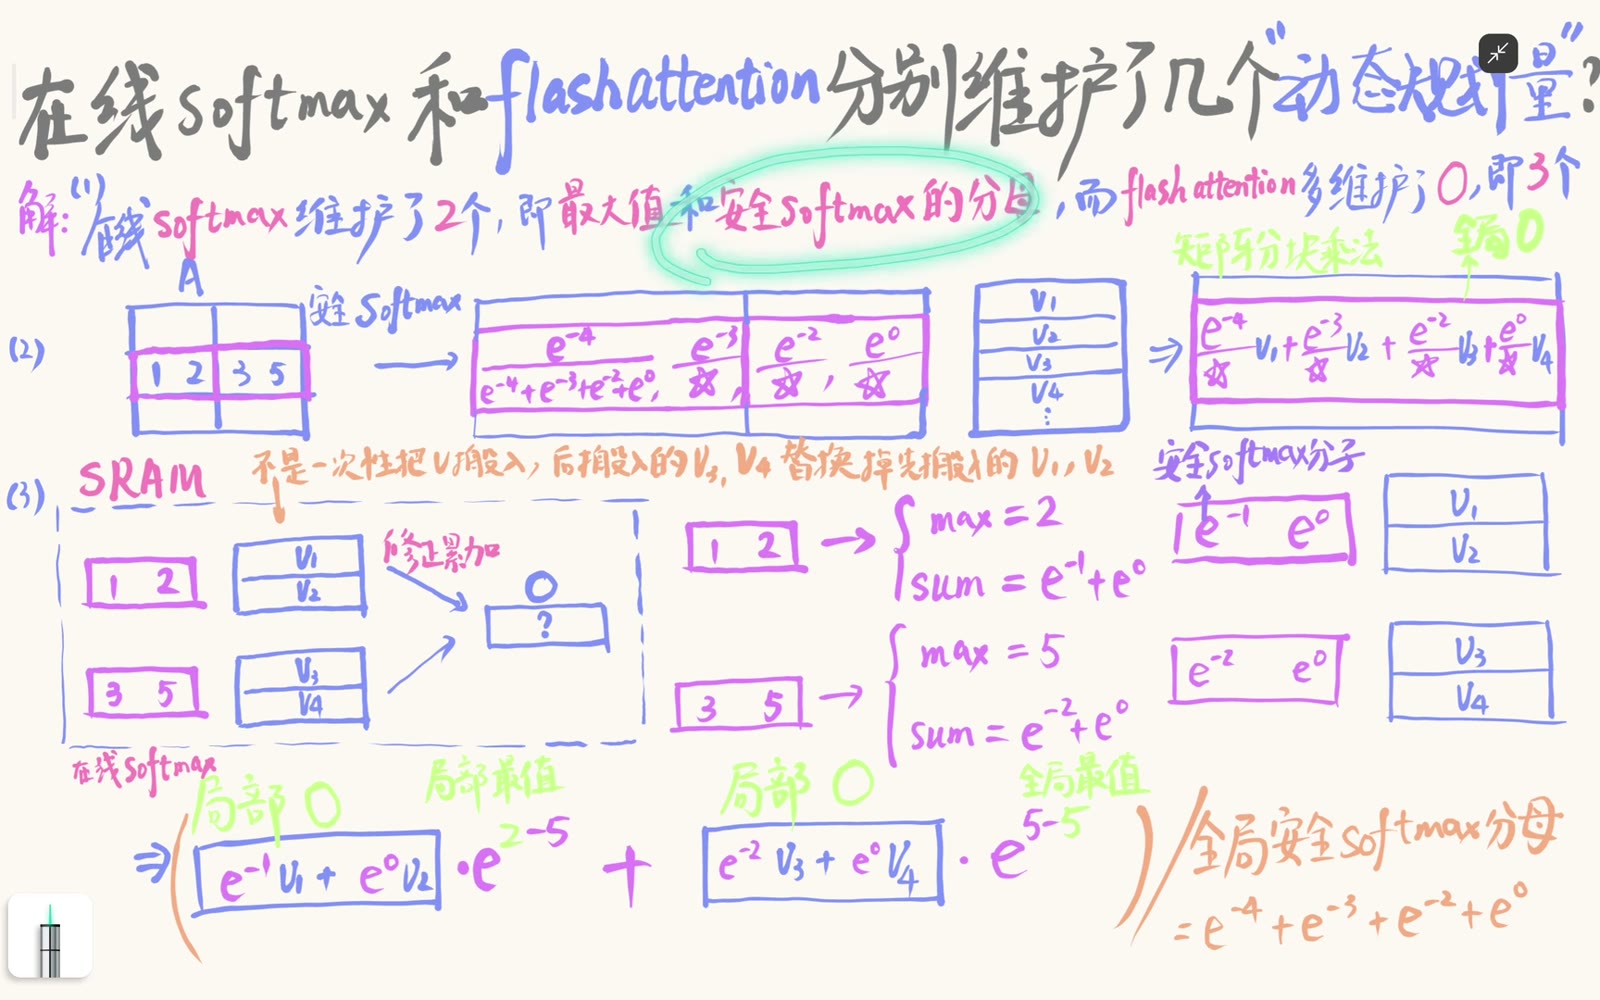 在线softmax和flashattention分别维护了几个"动态规划量"?
解:(1)在线softmax维护了2个,即最大值和安全softmax的分母,而flashattention多维护了O,即3个
A
安全softmax
矩阵分块乘法
全局O
(2)
1 2 3 5
e^-4/(e^-4+e^-3+e^-2+e^0), e^-3/☆, e^-2/☆, e^0/☆
V1
V2
V3
V4
⋮
⇒ e^-4/☆ V1 + e^-3/☆ V2 + e^-2/☆ V3 + e^0/☆ V4
(3)
SRAM
不是一次性把V搬入,后搬入的V3,V4替换掉先搬入的V1,V2
安全softmax分子
1 2
V1
V2
修正累加
O
?
3 5
V3
V4
在线softmax
1 2 → { max = 2
sum = e^-1+e^0
e^-1 e^0
V1
V2
3 5 → { max = 5
sum = e^-2+e^0
e^-2 e^0
V3
V4
局部O
局部最值
局部O
全局最值
⇒ ( e^-1 V1 + e^0 V2 · e^2-5 + e^-2 V3 + e^0 V4 · e^5-5 ) / 全局安全softmax分母
= e^-4 + e^-3 + e^-2 + e^0